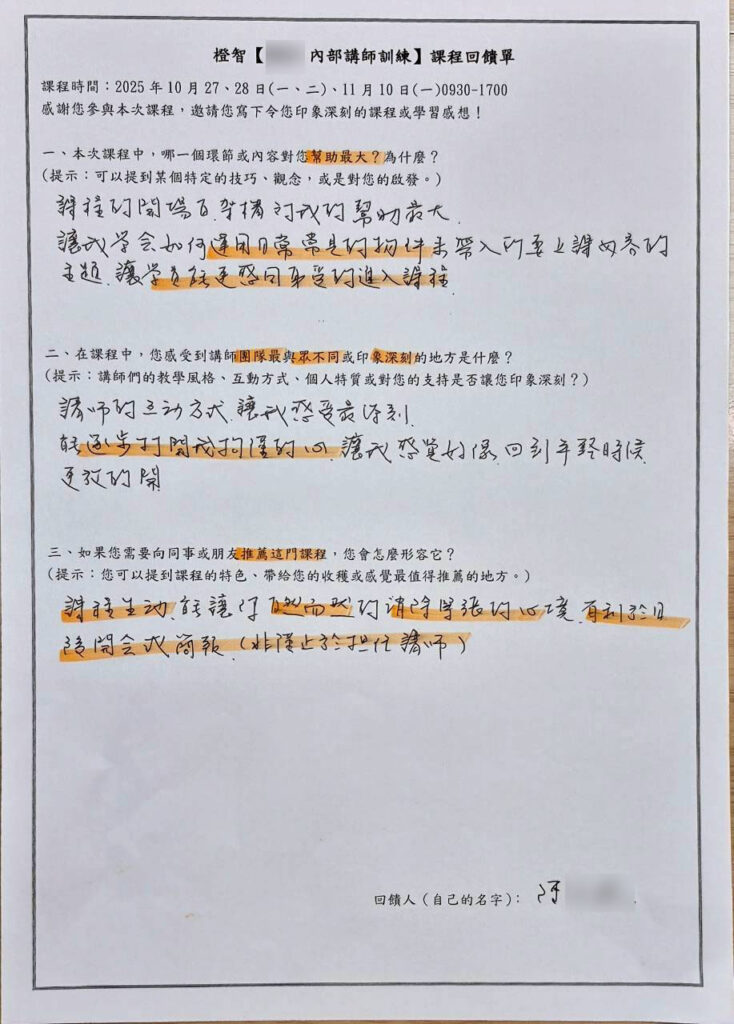 橙智【 內部講師訓練】課程回饋單
課程時間：2025 年 10 月 27、28 日(一、二)、11 月 10 日(一)0930-1700
感謝您參與本次課程，邀請您寫下令您印象深刻的課程或學習感想！
一、本次課程中，哪一個環節或內容對您幫助最大？為什麼？
(提示：可以提到某個特定的技巧、觀念，或是對您的啟發。)
課程的開場白.架構對我的幫助最大.
讓我學会如何運用日常常見的物件來帶入所要上課內容的
主題.讓學員能更感同身受的進入課程.
二、在課程中，您感受到講師團隊最與眾不同或印象深刻的地方是什麼？
(提示：講師們的教學風格、互動方式、個人特質或對您的支持是否讓您印象深刻？)
講師的互動方式.讓我感受最深刻.
能逐步打開我拘僅的心.讓我感覺好像.回到年輕時候.
更放的開
三、如果您需要向同事或朋友推薦這門課程，您會怎麼形容它？
(提示：您可以提到課程的特色、帶給您的收穫或感覺最值得推薦的地方。)
課程生動.能讓你自然而然的消除緊張的心境.有利於日
後開会或簡報.(非僅止於担任講師)
回饋人(自己的名字)：